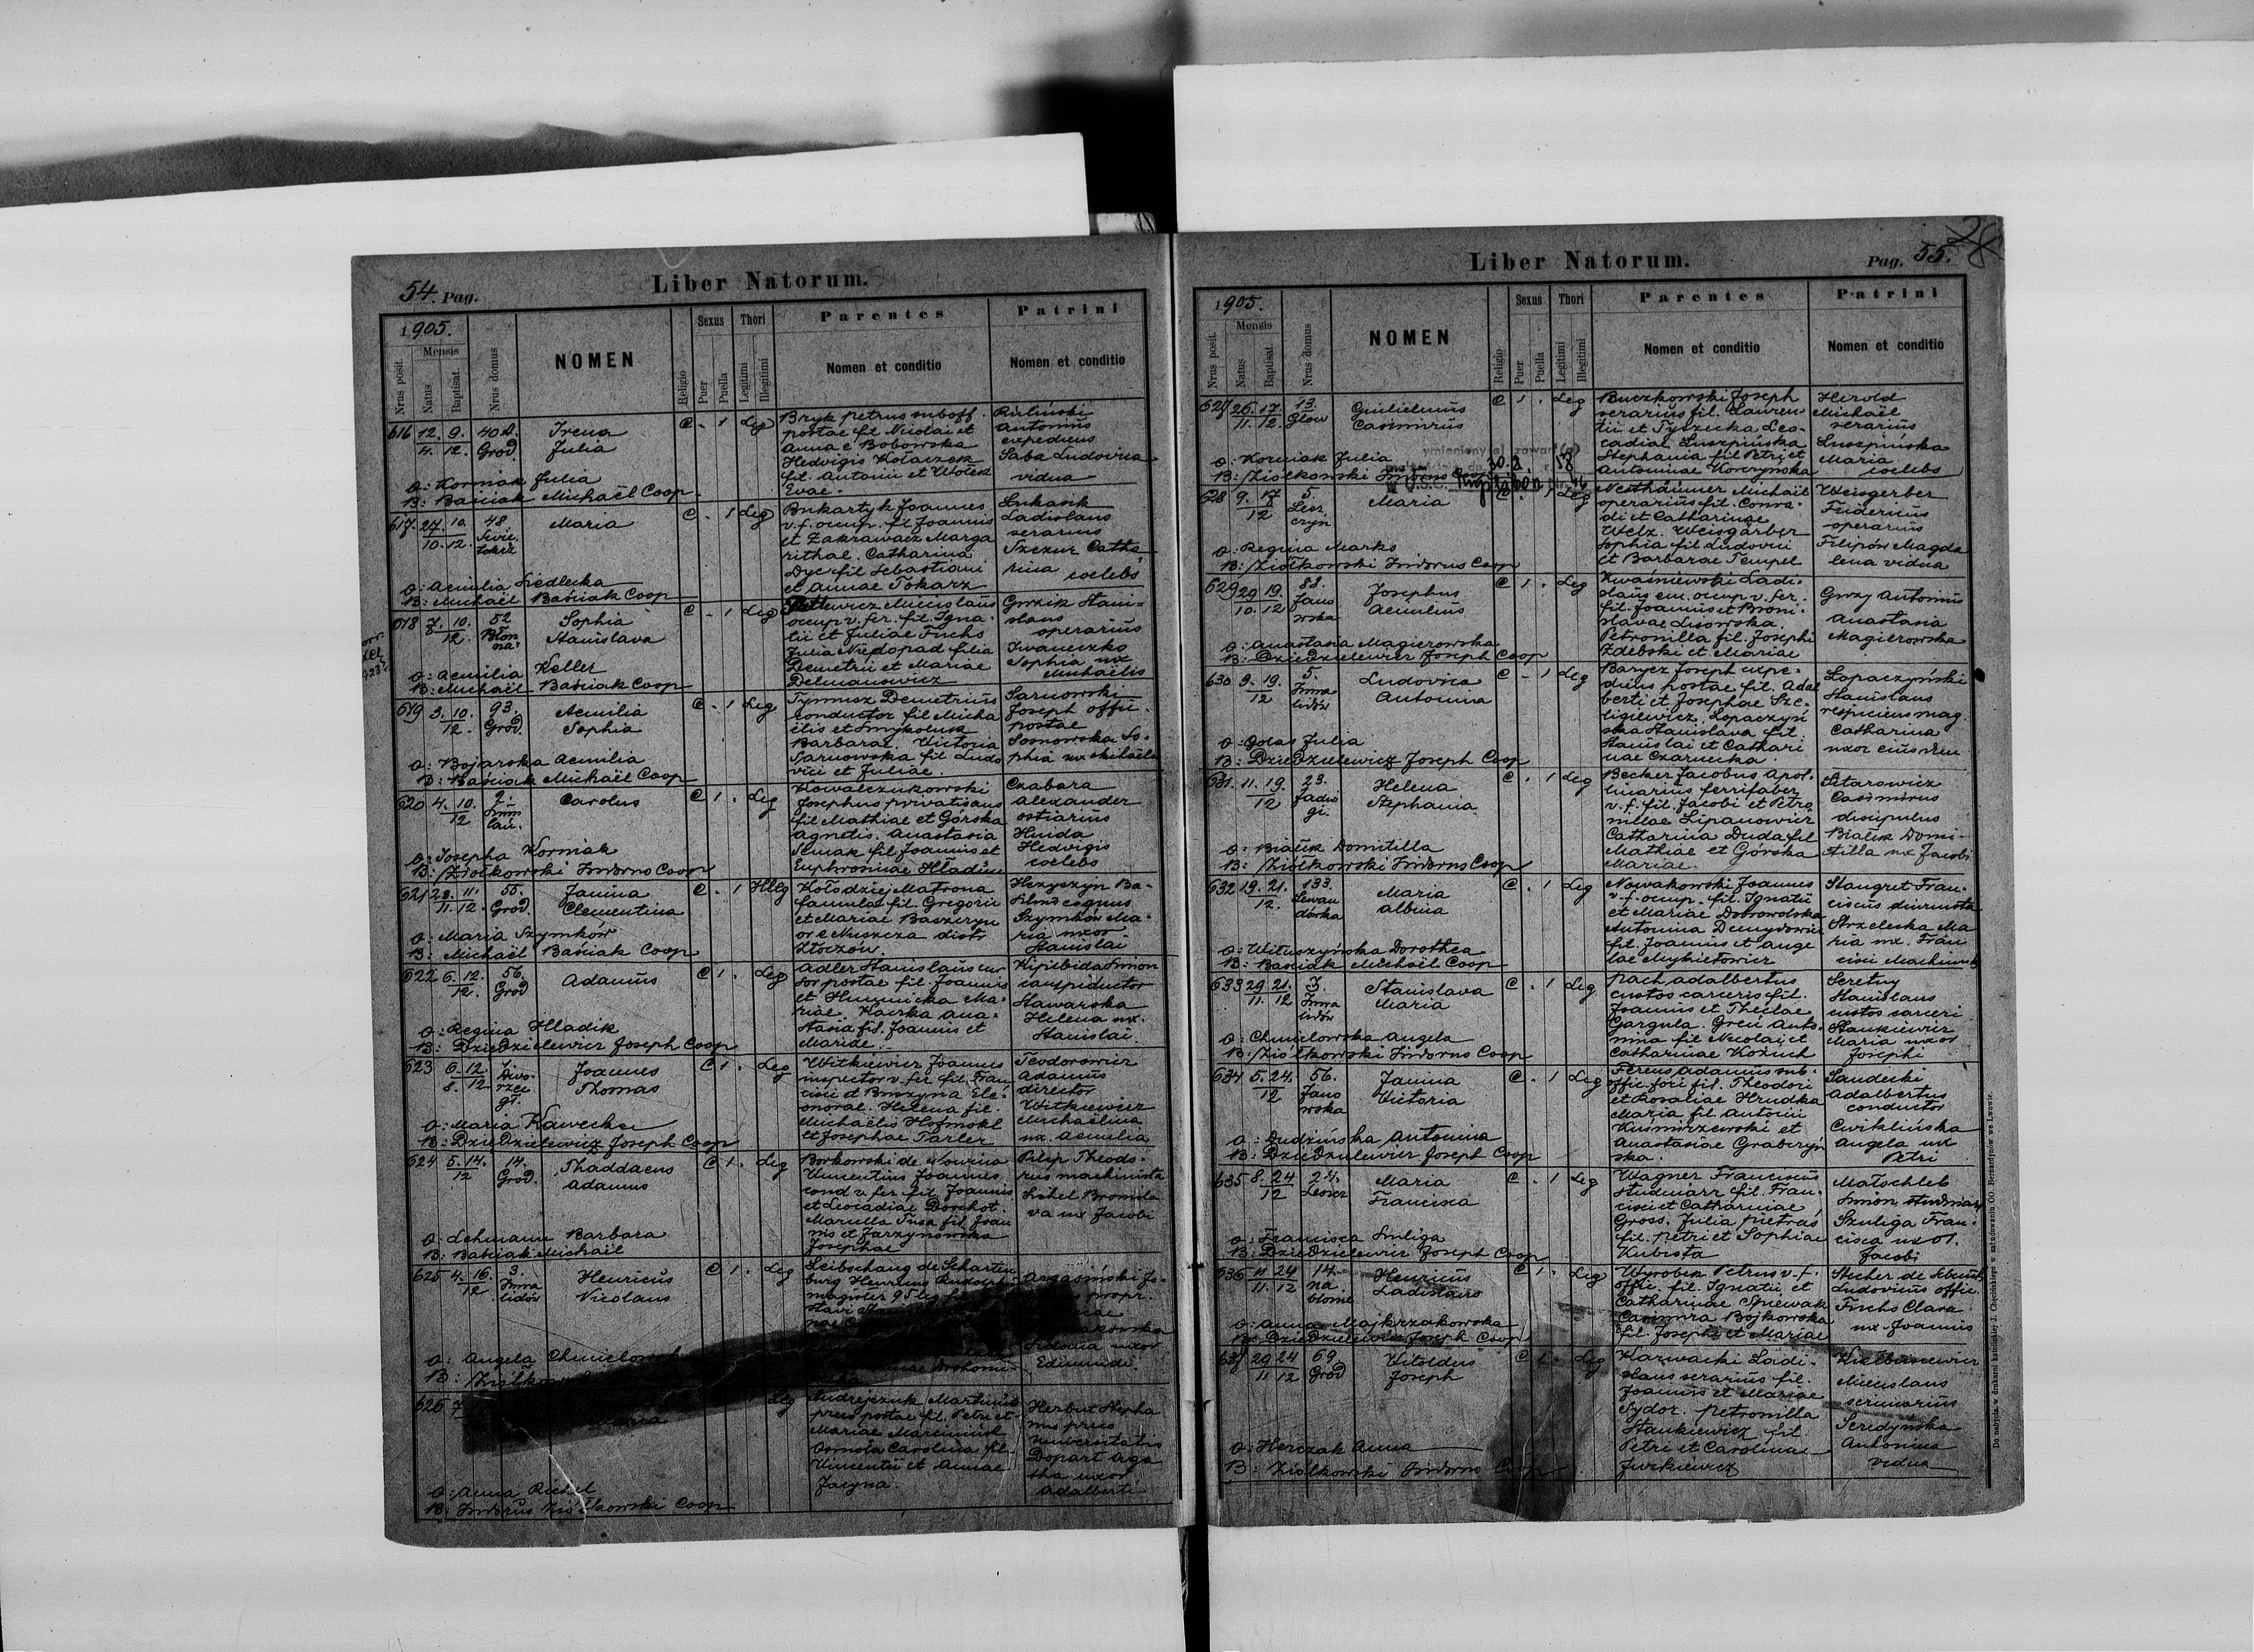 54. Pag.
Liber Natorum.
1905.
Nrus posit.
Mensis
Natus
Baptisat.
Nrus domus
NOMEN
Religio
Sexus
Puer
Puella
Thori
Legitimi
Illegitimi
Parentes
Nomen et conditio
Patrini
Nomen et conditio
616 12. 9. 40A. Irena C - 1 Leg
4. 12. Grod. Julia
Bryk Petrus suboff.
postae fil Nicolai et
Anna e Bobowska
Hedvigis Kołaczek
fil. Antonii et Wołek
Evae.
Antonius
expediens
Saba Ludovica
vidua
O: Korniak Julia
B: Baśiak Michaël Coop
617. 27. 10. 48. Maria C - 1 Leg
10. 12.
Bukartyk Joannes
v. f. ocup. fil Joannis
et Zakrawacz Marga
rithae. Catharina
Dyc fil Sebastiani
et Annae Tokarz
Łukasik
Ladislaus
serarius
Szczur Catha
rina coelebs
O: Aemilia Siedlecka
B: Michaël Baśiak Coop
618 7. 10. 52 Sophia C - 1 Leg
12. Błon Stanislava
na
Mecislaus
occup v. fer. fil. Igna
tii et Juliae Fuchs
Julia Niedopad filia
Demetrii et Mariae
Delmanowicz
Gwzik Stani=
slaus
operarius
Iwaneczko
Sophia ux
Michaëlis
O: Aemilia Keller
B: Michaël Baśiak Coop
619 3. 10. 93. Aemilia C - 1 Leg
12. Grod. Sophia
Tymusz Demetrius
conductor fil Micha
ëlis et Smykoluk
Barbarae. Victoria
Sarnowska fil Ludo
vici et Juliae.
Sarnowski
Joseph offic.
postae
Sosnowska So=
phia ux Michaëlis
O: Bojarska Aemilia
B: Baśiak Michaël Coop
620 4. 10. 2. Carolus C 1 . Leg
12
Kowalczukowski
Josephus privatisans
fil Mathiae et Górska
Agnetis. Anastasia
Semak fil Joannis et
Euphrosinae Hładiu
Czabara
Alexander
ostiarius
Hnida
Hedvigis
coelebs
O: Josepha Korniak
B: Ziołkowski Isidorus Coop
621 28. 11. 55. Janina C - 1 Illeg
11. 12. Grod. Clementina
Kołodziej Matrona
famula fil. Gregorii
et Mariae Baszczyn
or e Nuszcza distr
Złoczów
Szymków Ma=
ria uxor
Stanislai
O: Maria Szymków
B: Michaël Baśiak Coop
622 6. 12. 56. Adamus C 1 . Leg
12. Grod
Adler Stanislaus cur
sor postae fil. Joannis
et Huminicka Ma=
riae. Kaczka Ana=
stasia fil. Joannis et
Mariae.
Kipibida Simon
conductor
Stawarska
Helena ux.
Stanislai.
O: Regina Hladik
B: Dziedzielewicz Joseph Coop
623 6. 12. Dwo- Joannes C 1 . Leg
8. 12 rzec Thomas
gł.
Witkiewicz Joannes
inspector v. fer fil. Fran
cisci et Bruzyna Ele=
onorae. Helena fil.
Michaëlis Hofmokl
et Josephae Tarler
Teodorowicz
Adamus
director
Witkiewicz
Michaëlina
ux. Aemilia
O: Maria Kawecka
B: Dziedzielewicz Joseph Coop
624 5. 14. 14. Thaddaeus C 1 . Leg
12 Grod. Adamus
Borkowski de Nowina
Vincentius Joannes
cond v. fer fil. Joannis
et Leocadiae Dorchot.
Mariella Tusa fil Joan
nis et Jarzynowska
Josephae
Pilip Theodo=
rus machinista
Sichel Bronisla
va ux Jacobi
O: Lehmann Barbara
B: Baśiak Michaël
625 4. 16. 3. Henricus C 1 . Leg
12 Inwa Nicolaus
lidów
Leibschang de Scharten
burg Henricus Rudolph
magister 95 leg
Argasiński Jo=
propr.
uxor
Edmundi
O: Angela Chmielowska
B: Ziołkowski
626 7 Leg
Andrejczuk Martinus
postae fil. Petri et
Mariae Marciniuk
Osmola Carolina fil.
Vincentii et Annae
Jacyna.
Herbut Stepha
nus
universitatis
Dopart Aga
tha uxor
Adalberti
O: Anna Richel
B: Isidorus Ziołkowski Coop
Liber Natorum.
Pag. 55.
1905.
Nrus posit.
Mensis
Natus
Baptisat.
Nrus domus
NOMEN
Religio
Sexus
Puer
Puella
Thori
Legitimi
Illegitimi
Parentes
Nomen et conditio
Patrini
Nomen et conditio
627 26. 17. 13. Guilielmus C 1 . Leg
11. 12. Glow Casimirus
Buczkowski Joseph
serarius fil. Lauren
tii et Tyszecka Leo=
cadiae Łuszpińska
Stephania fil Petri et
Antoninae Worczynska
Herold
Michaël
serarius
Łuszpińska
Maria
coelebs
O: Korniak Julia
B: Ziołkowski Isidorus Coop
628 9. 17 5. Maria C . 1 Leg
12 Lesz
czyń
Nesthäuner Michaël
operarius fil. Conra=
di et Catharinae
Welz. Weisgärber
Sophia fil Ludovici
et Barbarae Tempel
Weisgerber
Fridericus
operarius
Filipów Magda
lena vidua
O: Regina Marko
B: Ziołkowski Isidorus Coop
629 29 19. 88. Josephus C 1 . Leg
10. 12 Jano Aemilius
wska
Kwaśniewski Ladi=
slaus em. occup v. fer.
fil. Joannis et Broni=
slavae Lisowska.
Petronilla fil. Josephi
Zdebski et Mariae
Gwzy Antonius
Anastasia
Magierowska
O: Anastasia Magierowska
B: Dziedzielewicz Joseph Coop
630 9. 19. 5. Ludovica C - 1 Leg
12 Inwa Antonina
lidów
Barycz Joseph expe=
diens postae fil. Adal
berti et Josephae Sze=
ligiewicz. Łopaczyń
ska Stanislava fil.
Stanislai et Cathari
nae Czarnecka.
Łopaczyński
Stanislaus
respiciens mag.
Catharina
uxor eius
O: Golas Julia
B: Dziedzielewicz Joseph Coop
631. 11. 19. 23. Helena C . 1 Leg
12 Jadwi Stephania
gi.
Becker Jacobus Apol=
linarius ferrifaber
v. f. fil. Jacobi et Petro
nillae Lipanowicz
Catharina Duda fil
Mathiae et Górska
Mariae.
Sitarowicz
Casimirus
discipulus
Białik Domi=
tilla ux Jacobi
O: Białik Domitilla
B: Ziołkowski Isidorus Coop
632 19. 21. 133. Maria C . 1 Leg
12. Lewan Albina
dówka
Nowakowski Joannes
v. f. ocup. fil. Ignatii
et Mariae Dobrowolska
Antonina Demydowicz
fil. Joannis et Ange
lae Mykietowicz
Stangret Fran=
ciscus diurnista
Strzelecka Ma
ria ux. Fran
cisci
O: Wituszyńska Dorothea
B: Baśiak Michaël Coop
633 29. 21. 3. Stanislava C . 1 Leg
11. 12 Inwa Maria
lidów
Pach Adalbertus
custos carceris fil.
Joannis et Theclae
Gargula. Greń Anto=
nina fil Nicolai et
Catharinae Kożuch
Seretny
Stanislaus
custos carceri
Stankiewicz
Maria uxor
Josephi
O: Chmielowska Angela
B: Ziółkowski Isidorus Coop
634 5. 24. 56. Janina C . 1 Leg
12 Jano Victoria
wska
Ferens Adamus sub=
offic. fori fil. Theodori
et Rosaliae Hrudka
Maria fil Antonii
Kuśmirzewski et
Anastasiae Grabczyń
ska.
Sandecki
Adalbertus
conductor
Cwiklińska
Angela ux
Petri
O: Dudzińska Antonina
B: Dziedzielewicz Joseph Coop
635 8. 24 24. Maria C . 1 Leg
12 Leszcz Francisca
Wagner Franciscus
studniarz fil. Fran=
cisci et Catharinae
Gross. Julia Pietras
fil. Petri et Sophiae
Kubista
Matochleb
Simon studniarz
Szuliga Fran=
cisca uxor.
Jacobi
O: Francisca Suliga
B: Dziedzielewicz Joseph Coop
636 11. 24 14. Henricus C 1 . Leg
11. 12 na Ladislaus
błonie
Wyrobek Petrus v. f.
offic. fil. Ignatii et
Catharinae Spiewak
Casimira Bojkowska
fil. Josephi et Mariae
Ludovicus offic.
Fuchs Clara
ux. Joannis
O: Anna Majkrzakowska
B: Dziedzielewicz Joseph Coop
637 29 24 69 Vitoldus C 1 . Leg
11 12 Grod Joseph
Karwacki Ladi=
slaus serarius fil.
Joannis et Mariae
Sydor. Petronilla
Stankiewicz fil.
Petri et Carolinae
Jurkiewicz
Kiełbusiewicz
Miecislaus
serinarius
Seredyńska
Antonina
vidua
O: Herczak Anna
B: Ziółkowski Isidorus Coop
Do nabycia w drukarni katolickiej J. Chęcińskiego w zabudowaniu OO. Bernardynów we Lwowie.